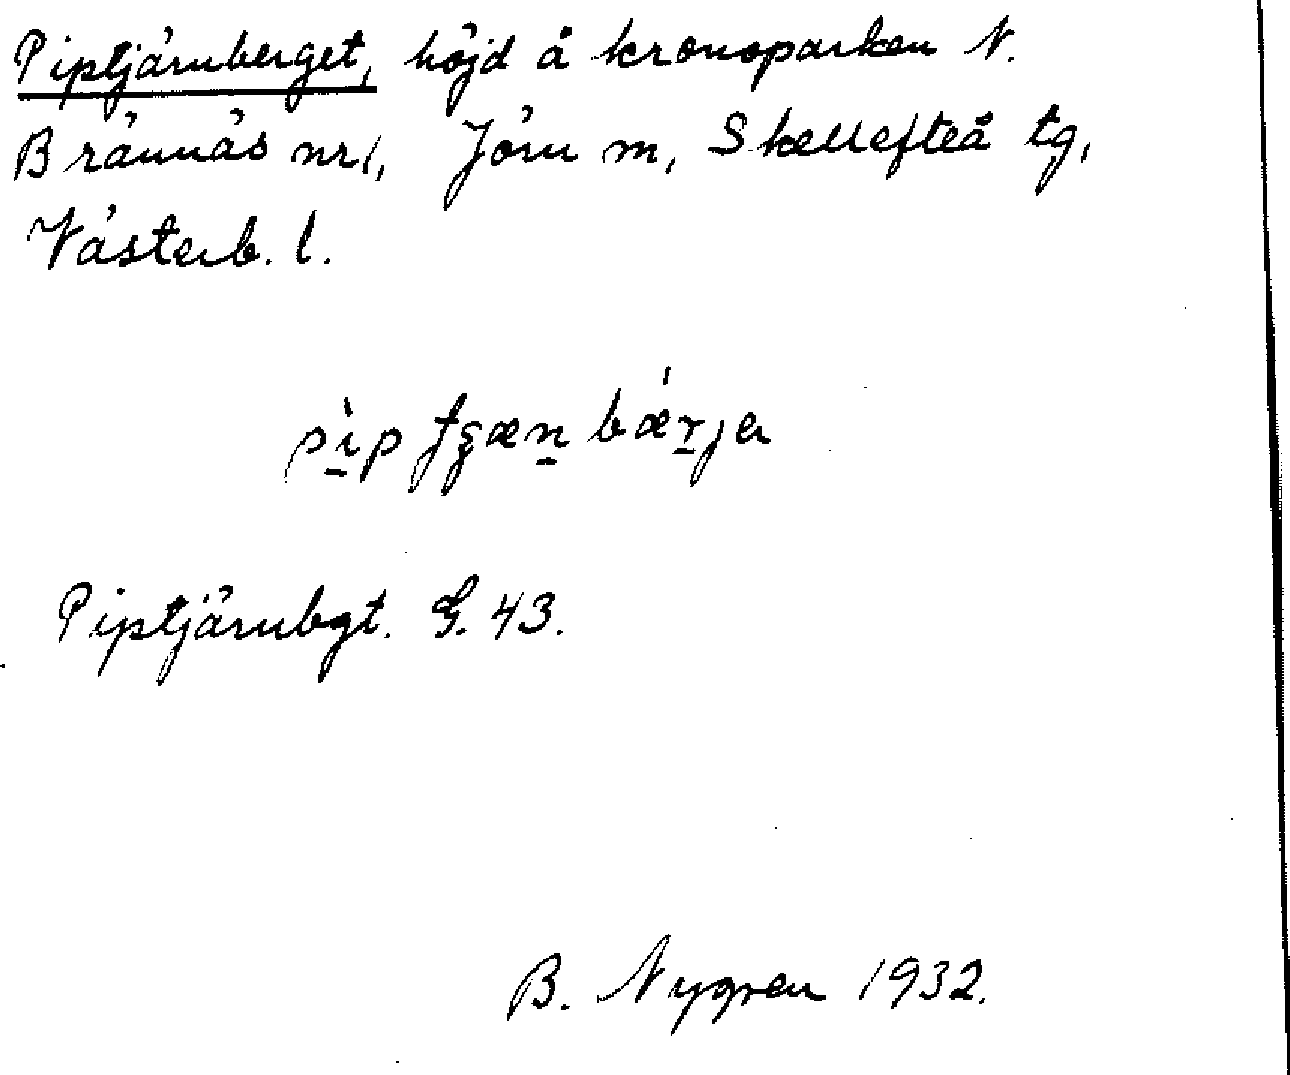 Piptjärnberget, höjd å kronoparken N.
Brännäs nr 1, Jörn m, Skellefteå tg,
Västerb. l.
Piptjärnbgt. G. 43.
B. Nygren 1932.